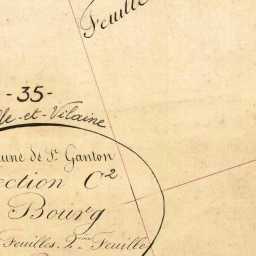 Feuille
- 35 -
lle-et-Vilaine
une de St Ganton
ection C2
Bourg
Feuilles. 2me Feuille